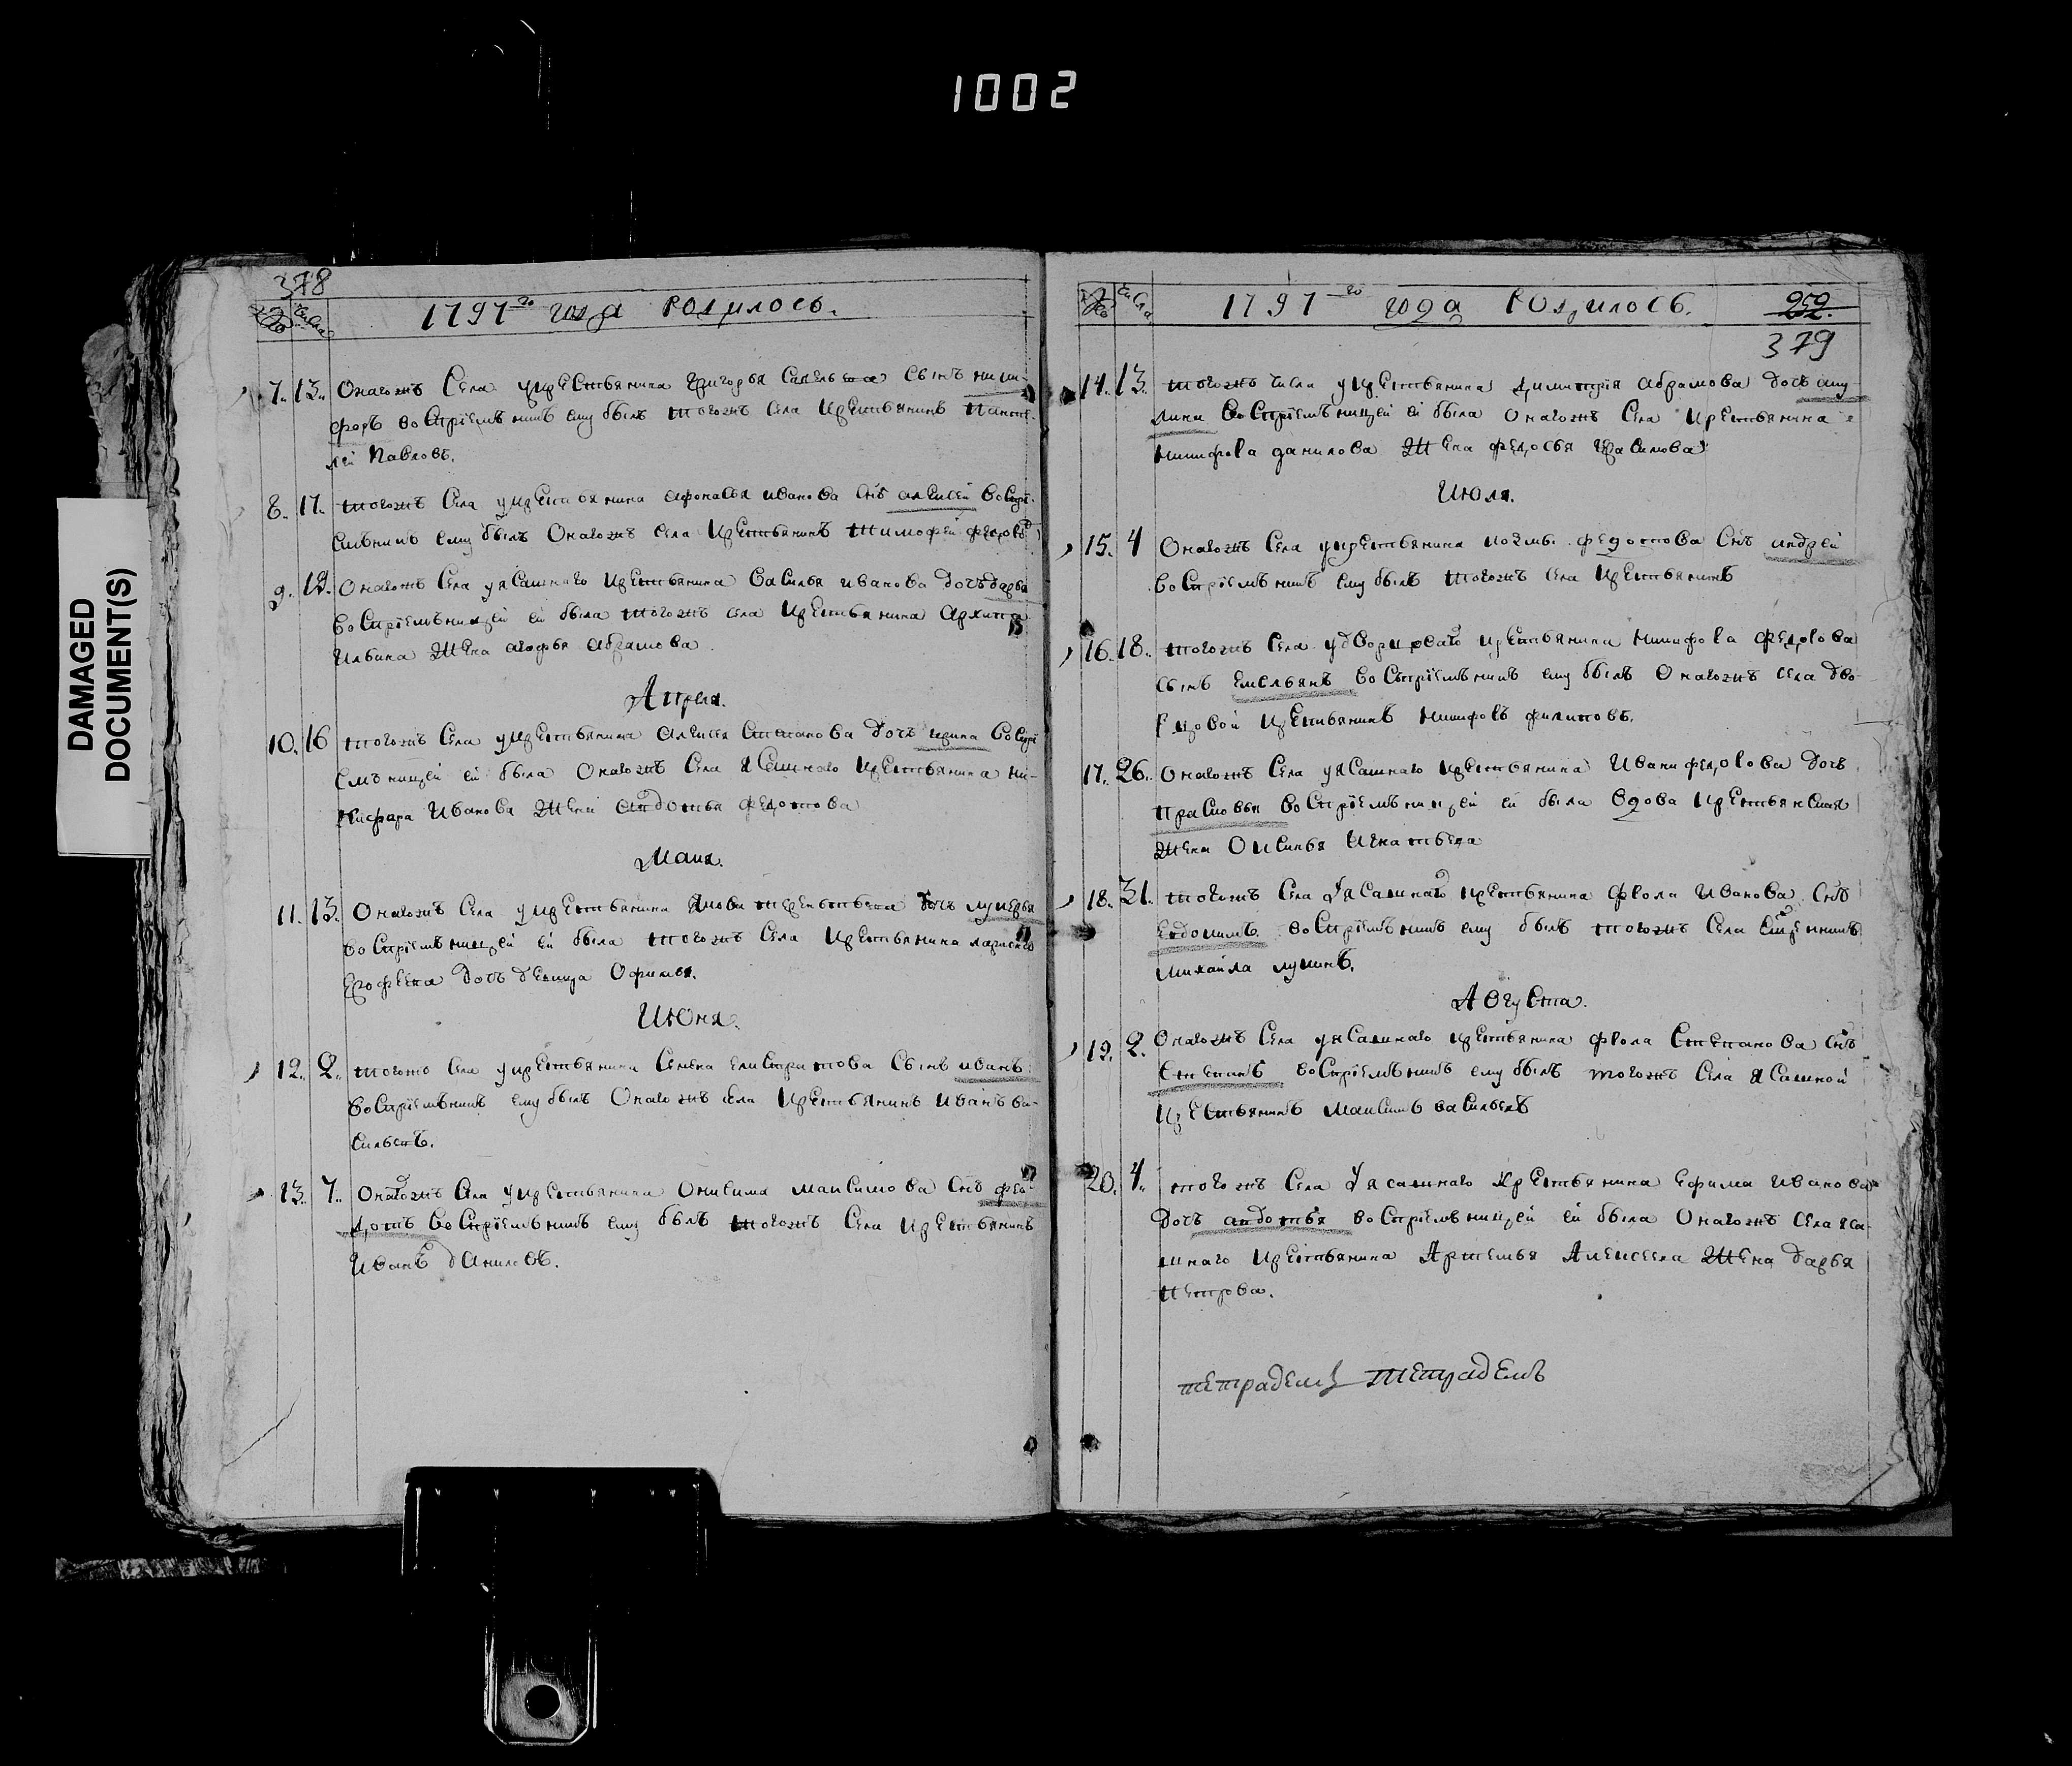 1002
DAMAGED
DOCUMENT(S)
378
№ Числа
1797 го года Родилось.
7. 13. Онагожъ Села укрестьянина Григорья Савельева Сынъ ники-
форъ воспрiемъникъ ему былъ тогожъ села крестьянинъ Панте-
лей Павловъ.
8. 17. тогожъ Села укрестьянина афонасья иванова снъ алексей воспрi-
емъникъ ему былъ Онагожъ села крестьянинъ тимофей федоровъ
9. Онагожъ Села уясашнаго крестьянина василья иванова дочь дарья
воспрiемъницей ей была тогожъ села крестьянина Архипа
Ильина жена агафья абрамова
Апреля.
10. 16 тогожъ Села укрестьянина алексея степанова дочь ирина воспрi
емъницей ей была Онагожъ Села ясашнаго крестьянина ни-
кифара Иванова жена авдотья федотова
Маия.
11. 13. Онагожъ Села укрестьянина Якова терентьева дочь лукерья
воспрiемъницей ей была тогожъ Села крестьянина
Ерофеева дочь девица Офимья.
Июня.
12. 2. тогожъ Села укрестьянина Семена елистратова Сынъ иванъ
воспрiемъникъ ему былъ Онагожъ села крестьянинъ иванъ ва-
сильевъ.
13. 7. Онагожъ Села укрестьянина Онисима максимова Снъ фе-
дотъ воспрiемъникъ ему былъ тогожъ Села крестьянинъ
Иванъ даниловъ.
№ Числа
1797 го года Родилось.
252.
379
14. 13. тогожъ числа укрестьянина димитрия абрамова дочь аку-
лина воспрiемъницей ей была онагожъ Села крестьянина
никифора данилова жена федосья
Июля.
15. 4 Онагожъ Села укрестьянина козмы федотова Снъ андрей
воспрiемъникъ ему былъ тогожъ села крестьянинъ
16. 18. тогожъ Села удворцоваго крестьянина никифора федорова
сынъ емельянъ воспрiемъникъ ему былъ Онагожъ села дво-
рцовой крестьянинъ никифоръ филиповъ.
17. 26. Онагожъ Села уясашнаго крестьянина Ивана федорова дочь
прасковья воспрiемъницей ей была вдова крестьянская
жена Оксинья Игнатьева
18. 31. тогожъ Села уясашнаго крестьянина фрола Иванова Снъ
евдокимъ воспрiемъникъ ему былъ тогожъ Села
михайла лукинъ.
Августа.
19. 2. Онагожъ Села уясашнаго крестьянина фрола Степанова Снъ
Степанъ воспрiемъникъ ему былъ тогожъ Села ясашной
крестьянинъ максимъ васильевъ
20. 4. тогожъ Села уясашнаго крестьянина ефима иванова
дочь авдотья воспрiемъницей ей была Онагожъ села яса-
шнаго крестьянина Артемья Алексеева жена дарья
петрова.